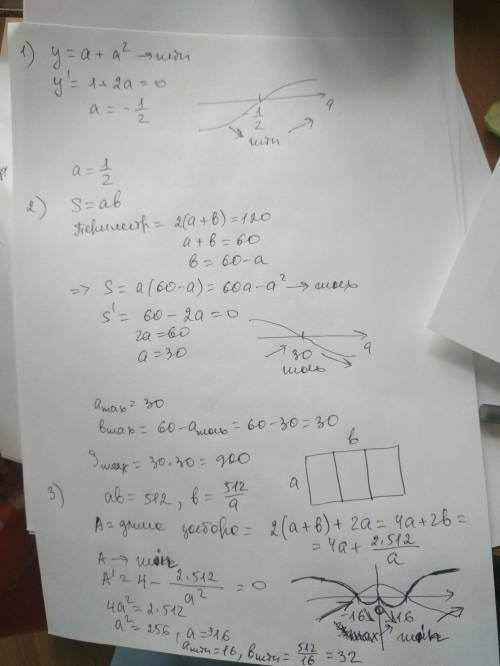 1) y = a + a² → min
y' = 1 + 2a = 0
a = -1/2
-1/2
a
min
a = 1/2
2) S = ab
Периметр = 2(a+b) = 120
a + b = 60
b = 60 - a
=> S = a(60-a) = 60a - a² → max
S' = 60 - 2a = 0
2a = 60
a = 30
30
a
max
a max = 30
b max = 60 - a max = 60 - 30 = 30
S max = 30·30 = 900
b
a
3) ab = 512, b = 512/a
A = длина забора = 2(a+b) + 2a = 4a + 2b =
= 4a + 2·512/a
A → min
A' = 4 - 2·512/a² = 0
4a² = 2·512
a² = 256, a = 16
-16 16
max min
a min = 16, b min = 512/16 = 32